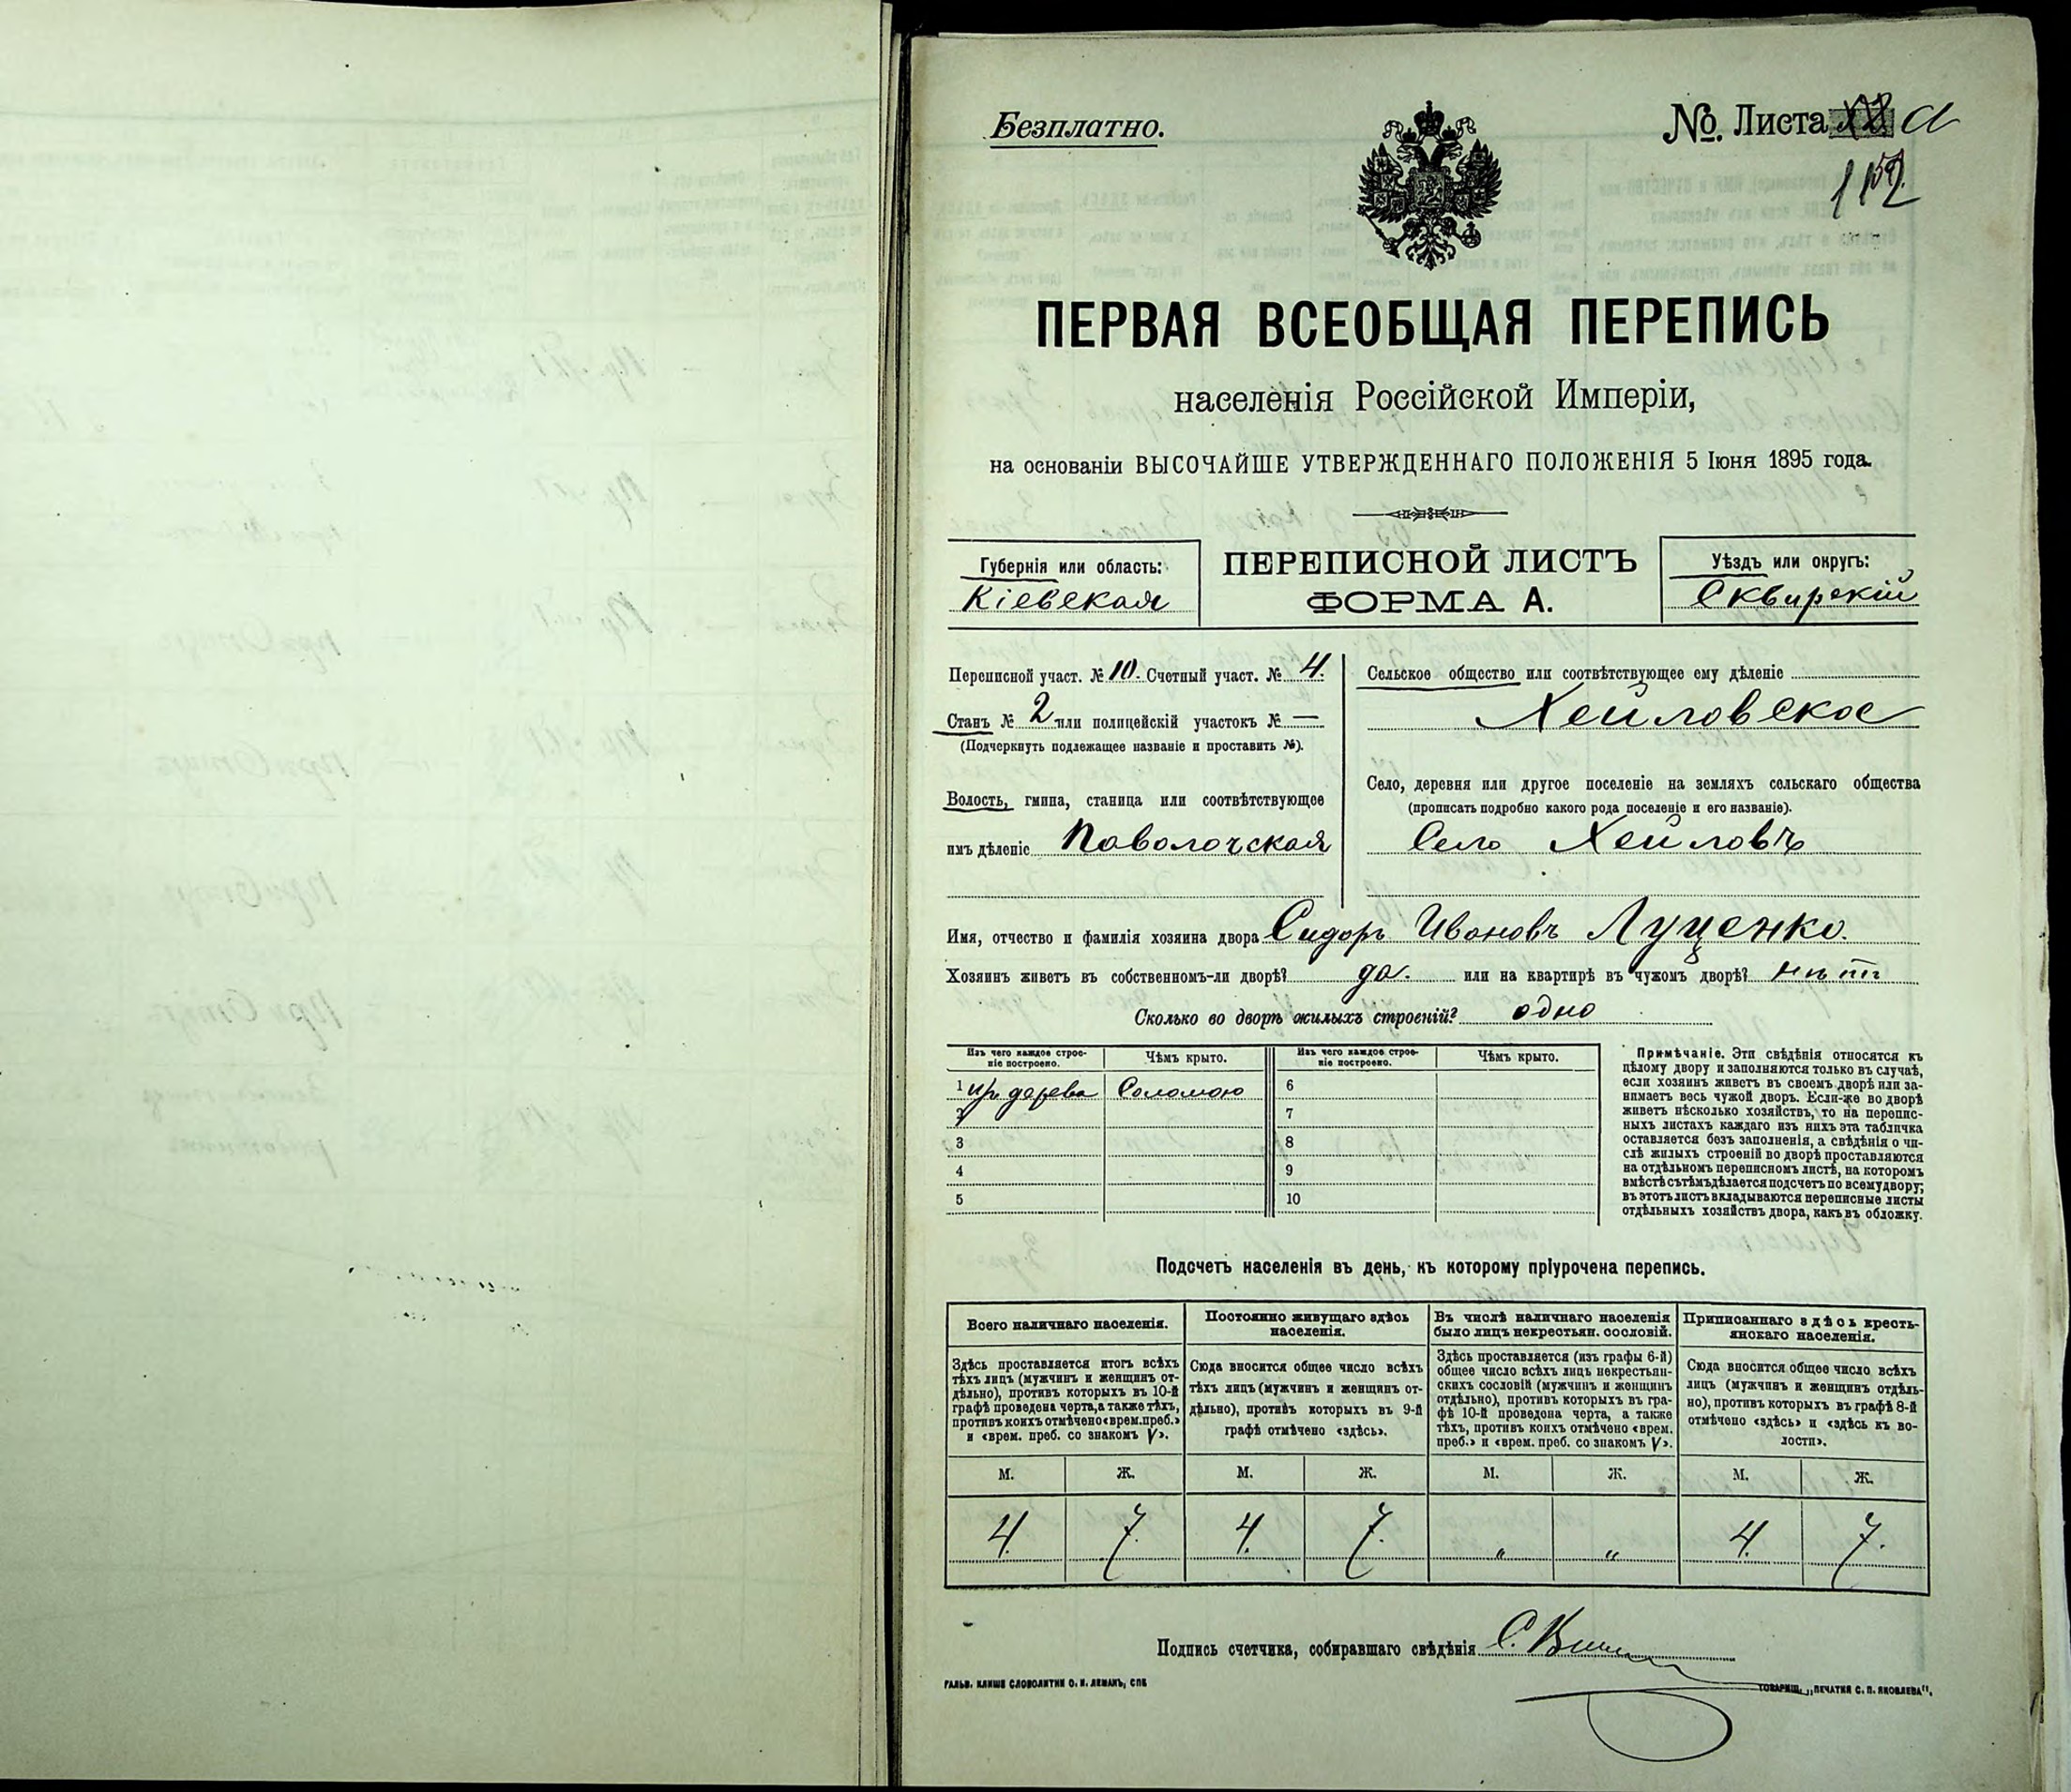 Безплатно.
№. Листа
ПЕРВАЯ ВСЕОБЩАЯ ПЕРЕПИСЬ
населенія Россійской Имперіи,
на основаніи ВЫСОЧАЙШЕ УТВЕРЖДЕННАГО ПОЛОЖЕНІЯ 5 Іюня 1895 года.
Губернія или область:
Кіевская
ПЕРЕПИСНОЙ ЛИСТЪ
ФОРМА А.
Уѣздъ или округъ:
Сквирскій
Переписной участ. № 10. Счетный участ. № 4.
Станъ № 2 или полицейскій участокъ № —
(Подчеркнуть подлежащее названіе и проставить №).
Волость, гмина, станица или соотвѣтствующее
имъ дѣленіе Паволочская
Сельское общество или соотвѣтствующее ему дѣленіе
Хейловское
Село, деревня или другое поселеніе на земляхъ сельскаго общества
(прописать подробно какого рода поселеніе и его названіе).
Село Хейловъ
Имя, отчество и фамилія хозяина двора Сидоръ Ивановъ Луценко.
Хозяинъ живетъ въ собственномъ-ли дворѣ? да. или на квартирѣ въ чужомъ дворѣ? нѣтъ
Сколько во дворѣ жилыхъ строеній? одно
Изъ чего каждое строе-
ніе построено.
Чѣмъ крыто.
Изъ чего каждое строе-
ніе построено.
Чѣмъ крыто.
1 изъ дерева Соломою 6
2 7
3 8
4 9
5 10
Примѣчаніе. Эти свѣдѣнія относятся къ
цѣлому двору и заполняются только въ случаѣ,
если хозяинъ живетъ въ своемъ дворѣ или за-
нимаетъ весь чужой дворъ. Если-же во дворѣ
живетъ нѣсколько хозяйствъ, то на перепис-
ныхъ листахъ каждаго изъ нихъ эта табличка
оставляется безъ заполненія, а свѣдѣнія о чи-
слѣ жилыхъ строеній во дворѣ проставляются
на отдѣльномъ переписномъ листѣ, на которомъ
вмѣстѣ съ тѣмъ дѣлается подсчетъ по всему двору;
въ этотъ листъ вкладываются переписные листы
отдѣльныхъ хозяйствъ двора, какъ въ обложку.
Подсчетъ населенія въ день, къ которому пріурочена перепись.
Всего наличнаго населенія.
Здѣсь проставляется итогъ всѣхъ
тѣхъ лицъ (мужчинъ и женщинъ от-
дѣльно), противъ которыхъ въ 10-й
графѣ проведена черта, а также тѣхъ,
противъ коихъ отмѣчено «врем. преб.»
и «врем. преб. со знакомъ V».
Постоянно живущаго здѣсь
населенія.
Сюда вносится общее число всѣхъ
тѣхъ лицъ (мужчинъ и женщинъ от-
дѣльно), противъ которыхъ въ 9-й
графѣ отмѣчено «здѣсь».
Въ числѣ наличнаго населенія
было лицъ некрестьян. сословій.
Здѣсь проставляется (изъ графы 6-й)
общее число всѣхъ лицъ некрестьян-
скихъ сословій (мужчинъ и женщинъ
отдѣльно), противъ которыхъ въ гра-
фѣ 10-й проведена черта, а также
тѣхъ, противъ коихъ отмѣчено «врем.
преб.» и «врем. преб. со знакомъ V».
Приписаннаго здѣсь кресть-
янскаго населенія.
Сюда вносится общее число всѣхъ
лицъ (мужчинъ и женщинъ отдѣль-
но), противъ которыхъ въ графѣ 8-й
отмѣчено «здѣсь» и «здѣсь къ во-
лости».
М. Ж. М. Ж. М. Ж. М. Ж.
4. 7. 4. 7. „ „ 4. 7.
Подпись счетчика, собиравшаго свѣдѣнія С.
ГАЛЬВ. КЛИШЕ СЛОВОЛИТНИ О. И. ЛЕМАНЪ, СПБ
ТОВАРИЩ. „ПЕЧАТНЯ С. П. ЯКОВЛЕВА".